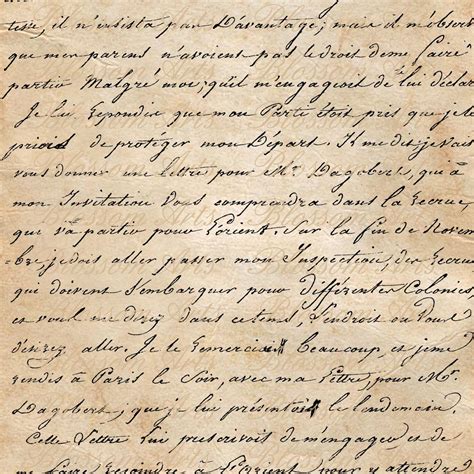 tise, il n'insista pas Davantage; mais il m'observ
que mes parens n'avoient pas le droit de me faire
partir Malgré moi; qu'il m'engageoit de lui déclar
Je lui Repondis que mon Parti étoit pris que je le
priois de protéger mon Départ. Il me dit; je vais
vous donner une lettre pour Mr. Dagobert, qui à
mon Invitation vous comprendra dans la Recrue,
que va partir pour l'orient. Sur la fin de Novem
bre, je dois aller passer mon Inspection, des Recrues
qui doivent s'embarquer pour différentes Colonies
et vous me direz dans ce tems, l'endroit ou vous
désirez aller. Je le Remerciai Beaucoup, et je me
rendis à Paris le Soir, avec ma lettre, pour Mr.
Dagobert, que je lui présentois le lendemain.
Cette lettre lui prescrivoit de m'engager et de
me faire